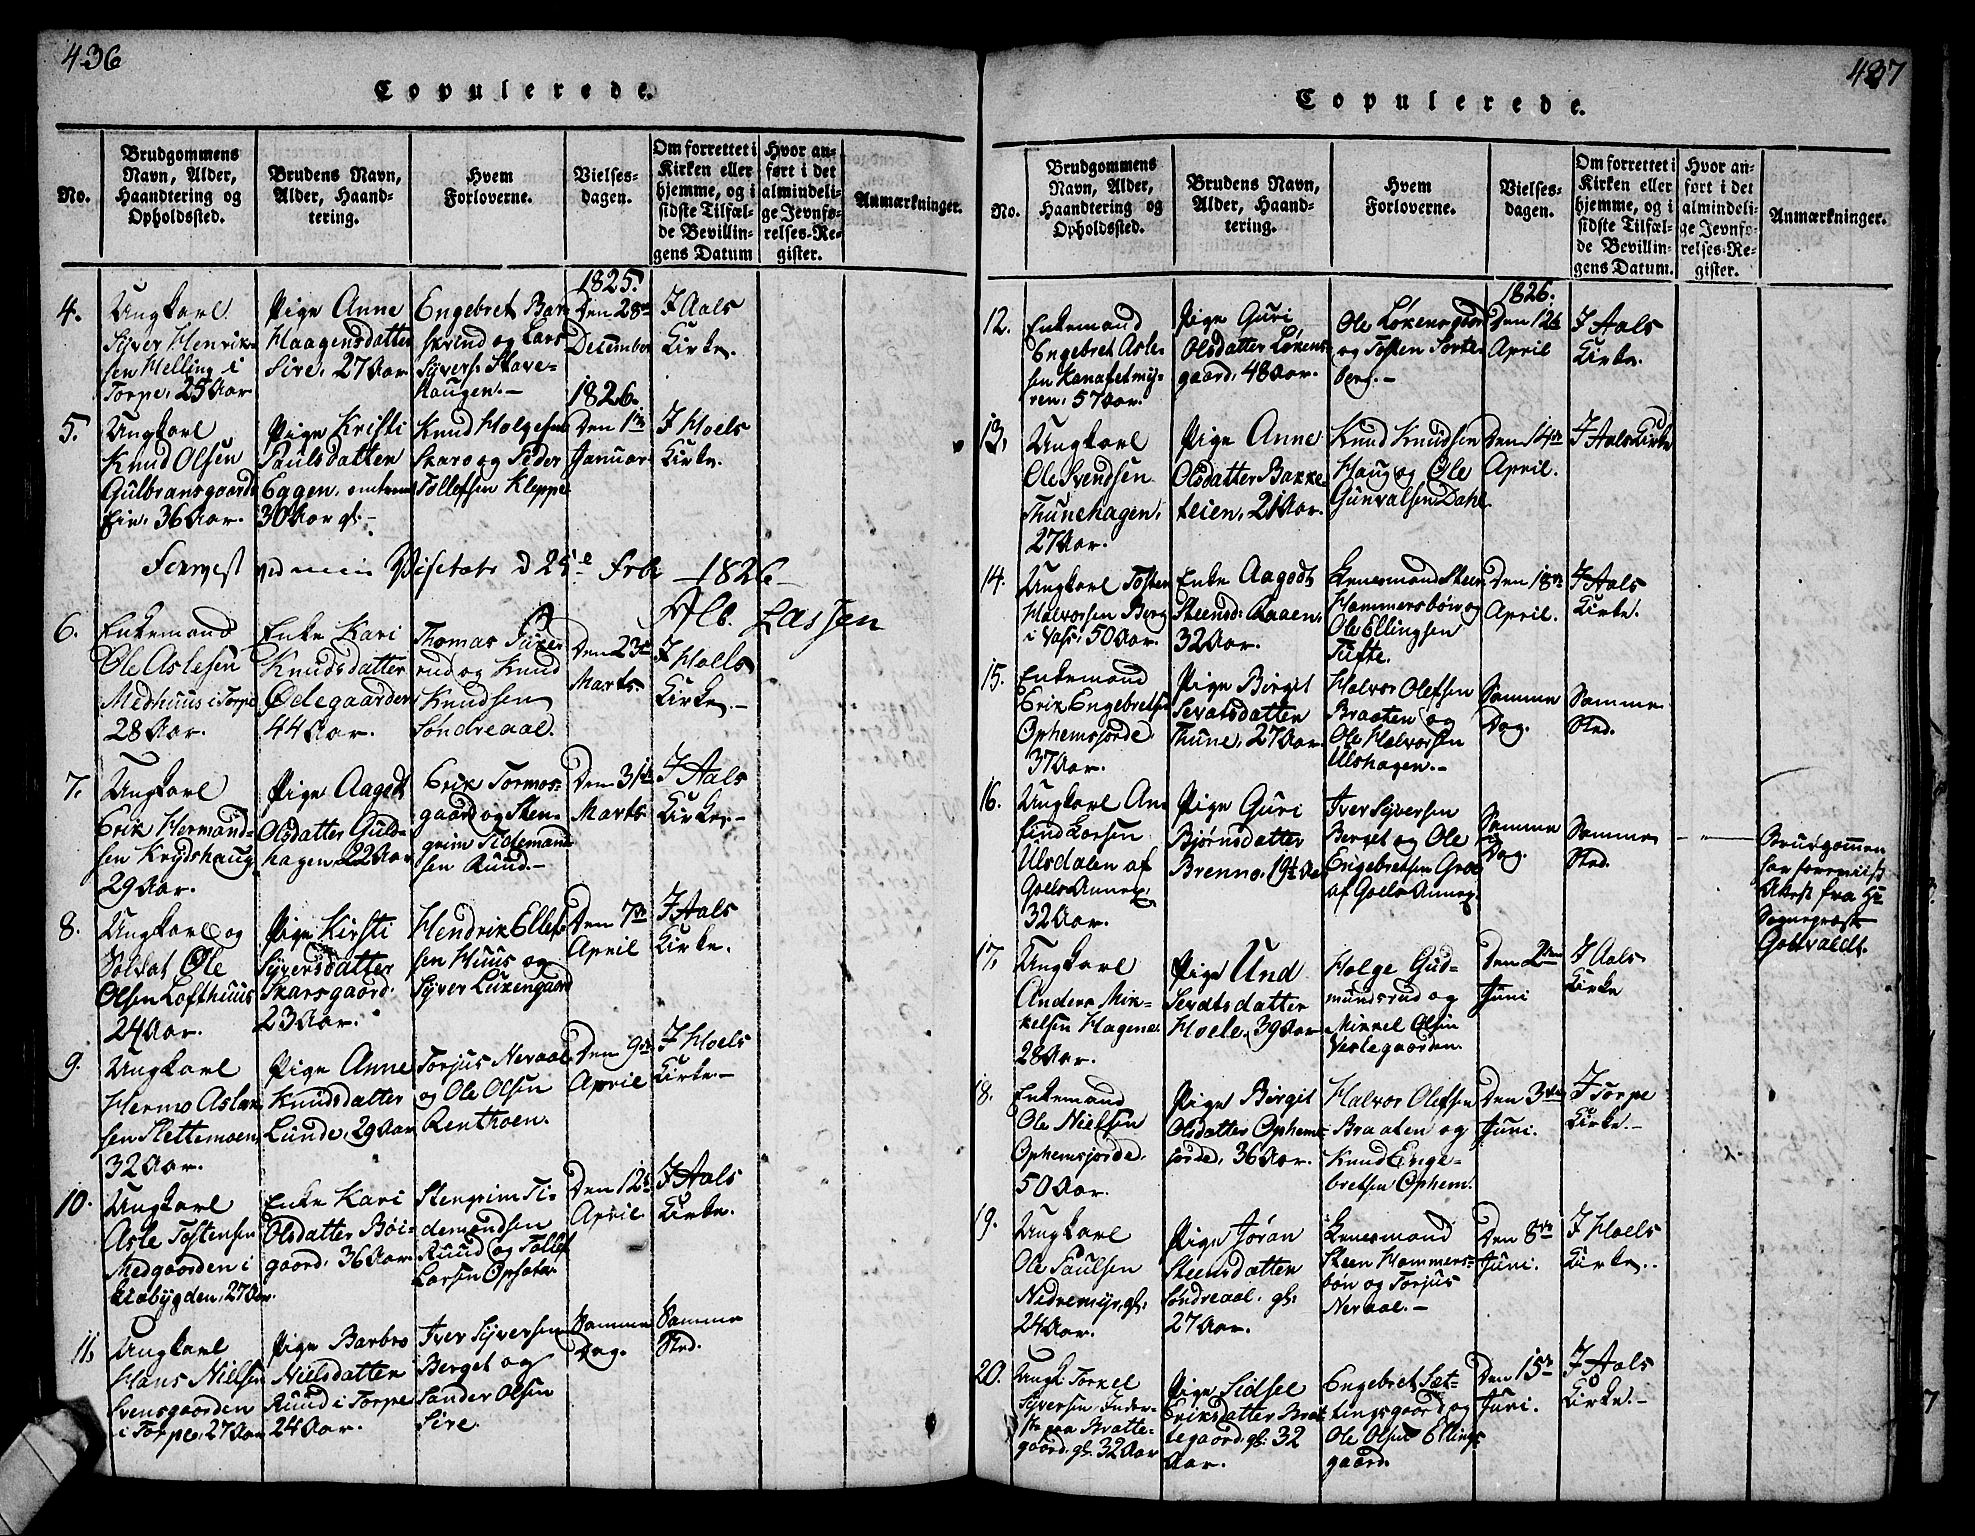 436
Copulerede.
No.
Brudgommens
Navn, Alder,
Haandtering og
Opholdssted.
Brudens Navn,
Alder, Haand-
tering.
Hvem
Forloverne.
Vielses-
dagen.
Om forrettet i
Kirken eller
hjemme, og i
sidste Tilfæl-
de Bevillin-
gens Datum
Hvor an-
ført i det
almindeli-
ge Jevnfø-
relses-Re-
gister.
Anmærkninger.
4.
Ungkarl
Syver Henrik-
sen Helling i
Torpe, 25 Aar
Pige Anne
Haagensdatter
Sire, 27 Aar
Engebret Bar-
skrind og Lars
Syvers: Stave-
haugen.-
1825.
Den 28de
December
I Aals
Kirke.
5.
Ungkarl
Knud Olsen
Gulbransgaards
Eie, 36 Aar.
Pige Kristi
Paulsdatter
Eggen,
30 Aar gl.-
Knud Holgesen
Skaro og Peder
Tollefsen Kleppe
1826.
Den 1ste
Januar
I Hoels
Kirke.
ved min Visitats d 25de Febr 1826
Alb. Lassen
6.
Enkemand
Ole Aslesen
Medhuus i Torpe
28 Aar.
Enke Kari
Knudsdatter
Ødegaarden
44 Aar.
Thomas
rud og Knud
Knudsen
Søndreaal.
Den 23de
Marts.
I Hoels
Kirke.-
7.
Ungkarl
Erik Hermand-
sen Krydshaug
29 Aar.
Pige Aagodt
Olsdatter Guld-
hagen 22 Aar
Erik Tormos-
gaard og Sten-
grim Tidemand-
sen Ruud.-
Den 31te
Marts
I Aals
Kirke.-
8.
Ungkarl og
Soldat Ole
Olsen Lofthuus
24 Aar.
Pige Kirsti
Syversdatter
Skarsgaard.
23 Aar.
Hendrik Ellef-
sen Huus og
Syver Luxengaard
Den 7de
April
I Aals
Kirke.
9.
Ungkarl
Hermo Aslak-
sen Slettemoen
32 Aar.
Pige Anne
Knudsdatter
Lunde, 29 Aar
Torjus Neraal
og Ole Olsen
Renthoen.
Den 9de
April
I Hoels
Kirke.-
10.
Ungkarl
Asle Tostensen
Medgaarden i
Leobygden, 27 Aar.
Enke Kari
Olsdatter Bøi-
gaard, 36 Aar.
Stengrim Ti-
demandsen
Ruud og Tollef
Larsen Opsata.
Den 12te
April
I Aals
Kirke.
11.
Ungkarl
Hans Nielsen
Svensgaarden
i Torpe, 27 Aar
Pige Barbro
Nielsdatter
Ruud i Torpe
24 Aar.
Iver Syversen
Berget og
Sander Olsen
Sire.
Samme
Dag.
Samme
Sted.
437
Copulerede.
No.
Brudgommens
Navn, Alder,
Haandtering og
Opholdssted.
Brudens Navn,
Alder, Haand-
tering.
Hvem
Forloverne.
Vielses-
dagen.
Om forrettet i
Kirken eller
hjemme, og i
sidste Tilfæl-
de Bevillin-
gens Datum.
Hvor an-
ført i det
almindeli-
ge Jevnfø-
relses-Re-
gister.
Anmærkninger.
12.
Enkemand
Engebret Asle-
sen Kanafetmy-
ren, 57 Aar.
Pige Guri
Olsdatter Løkens-
gaard, 48 Aar.
Ole Løkensgaard
og Tosten Sorte-
berg.-
1826.
Den 12te
April
I Aals
Kirke.
13.
Ungkarl
Ole Svendsen
Thunehagen,
27 Aar.
Pige Anne
Olsdatter Bakke-
teien, 21 Aar.
Knud Knudsen
Haug og Ole
Gunvalsen Dahl
Den 14de
April.
I Aals Kirke
14.
Ungkarl Tosten
Halvorsen Berg
i Vass, 50 Aar.
Enke Aagodt
Steensd: Aaaen,
32 Aar.
Lensmand Steen
Hammersbøn og
Ole Ellingsen
Tufte.
Den 18de
April.
I Aals
Kirke.
15.
Enkemand
Erik Engebretsen
Ophemsjorde
37 Aar.
Pige Birgit
Sevatsdatter
Thune, 27 Aar.
Halvor Olefsen
Braaten og
Ole Halvorsen
Ulshagen.-
Samme
Dag.
Samme
Sted.
16.
Ungkarl Am-
find Larsen
Ulsdalen af
Goels Annex,
32 Aar.
Pige Guri
Bjørnsdatter
Brenno, 19½ Aar
Iver Syversen
Berget og Ole
Engebretsen Groe
af Goels Annex.
Samme
Dag.
Samme
Sted.
Brudgommen
har foreviist
Attest fra Hr
Sognepræst
Gotvaldt.
17.
Ungkarl
Anders Mik-
kelsen Hagene.
28 Aar.
Pige Und
Sevatsdatter
Hoele, 39 Aar
Holge Gud-
mundsrud og
Mikkel Olsen
Vestegaarden.
Den 2den
Juni
I Aals
Kirke
18.
Enkemand
Ole Nielsen
Ophemsjorde,
50 Aar.
Pige Birgit
Olsdatter Ophems-
jorde, 36 Aar.
Halvor Olefsen
Braaten og
Knud Enge-
bretsen Ophem.
Den 3die
Juni.
I Torpe
Kirke.-
19.
Ungkarl
Ole Paulsen
Nedremyr, gl:
24 Aar.
Pige Jøran
Steensdatter
Søndreaal, gl:
27 Aar.
Lensmand
Steen Hammers-
bøn og Torjus
Neraal.-
Den 8de
Juni.
I Hoels
Kirke..
20.
Ungk: Torkel
Syversen Inder-
ste paa Bratte-
gaard, gl: 32 Aar
Pige Sidsel
Eriksdatter Brat-
tegaard, gl: 32
Aar.
Engebret Sæt-
tingsgaard og
Ole Olsen Ellings-
gaard.
Den 15de
Juni.
I Aals
Kirke.-